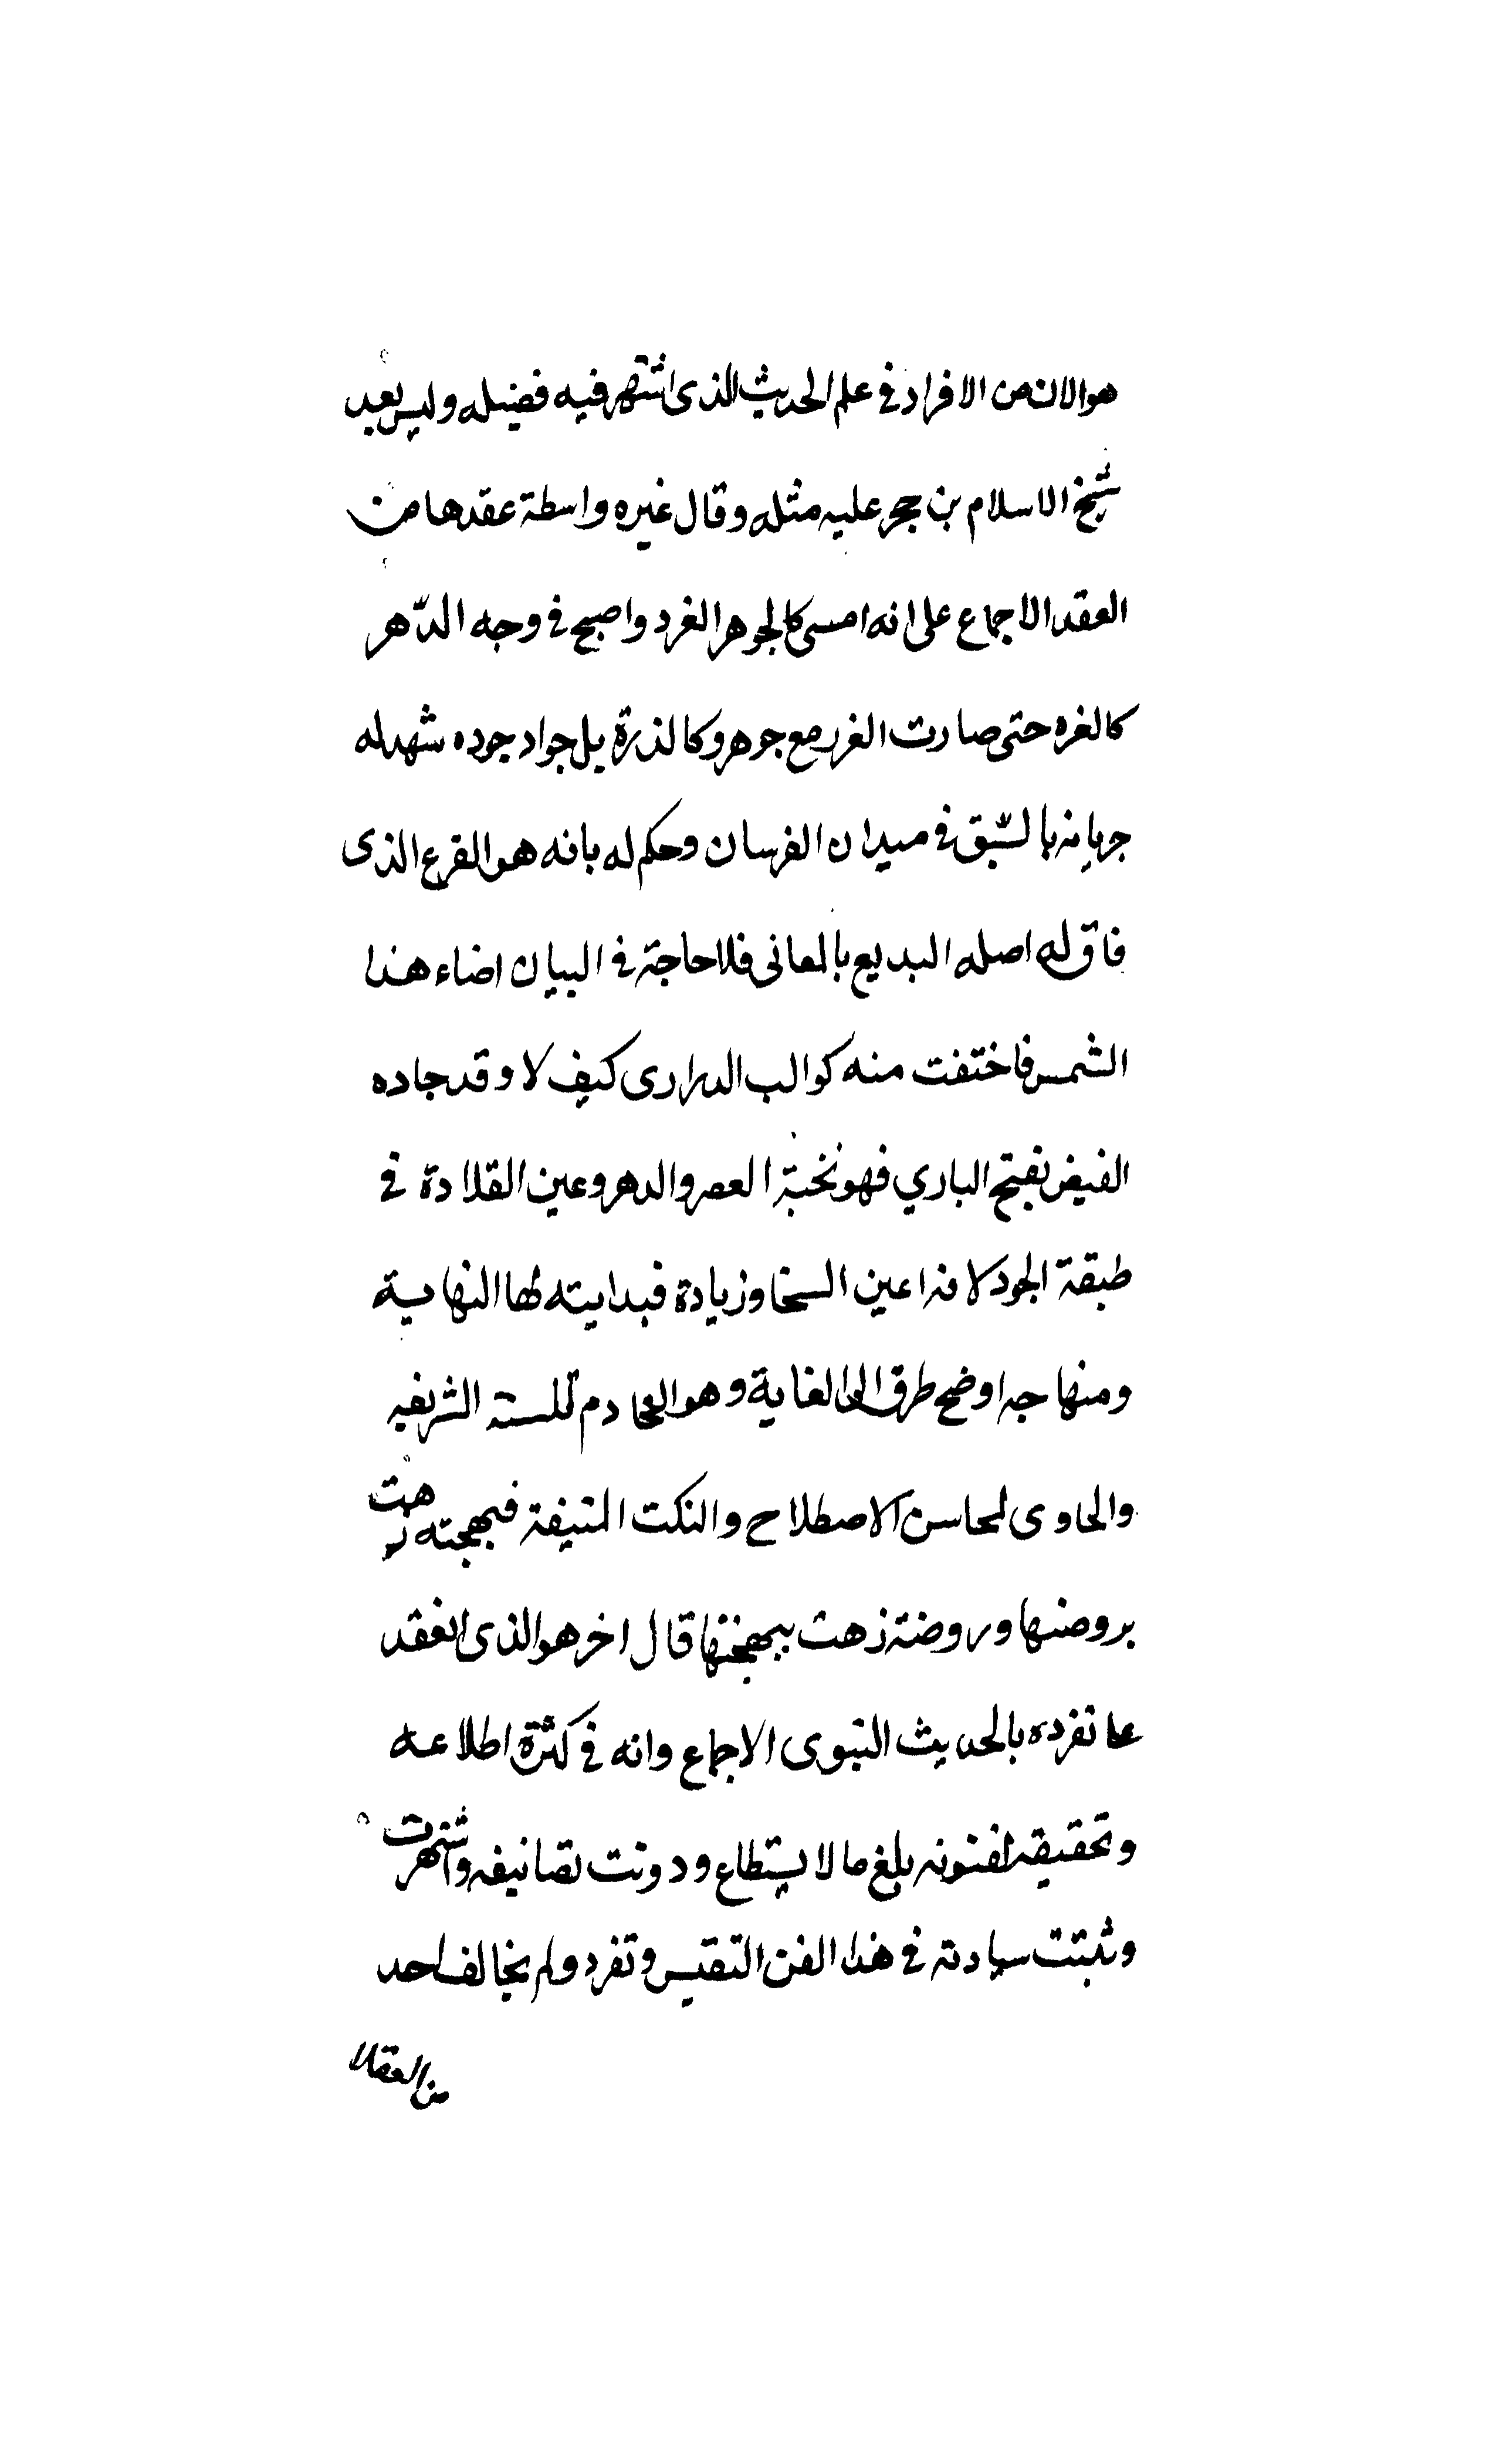 هو الان من الافراد في علم الحديث الذى اشتهر فيه فضيله وليس بعيد
شيخ الاسلام بن حجر عليه مثله وقال غيره واسطة عقدها من
العقد الاجماع على انه امسى كالجوهر الغرد واصبح في وجه الدّهر
كالغره حتى صارت الغرر مع جوهر وكالذرة بل جواد جوده شهد له
جريانه بالسّبق في ميدان الفرسان وحكم له بانه هو القرع الذى
فاق له اصله البديع بالمعانى فلا حاجة في البيان اضاء هذا
الشمس فاختفت منه كوالب الدرارى كيف لا وقد جاده
الفيض بفتح الباري فهو نخبة العصر والدهر وعين القلادة في
طبقة الجود لانه اعين السخا وزيادة فبدايته لها النهاية
ومنهاجه اوضح طرق الى الغاية وهو الخادم للسنه الشريفه
والحاوى لمحاسن الاصطلاح والنكت المنيفة فبهجته زهت
بروضنها وروضة زهت ببهجتها قال اخر هو الذى انعقد
عا تفرده بالحديث النبوى الاجماع وانه في كثرة اطلاعه
وتحقيقه لفنونه بلغ ما لا يستطاع ودونت تصانيفه واشتهرت
وثبتت سيادته في هذا الفن النفيس وتفرد ولم يخالف احد
من العقلا